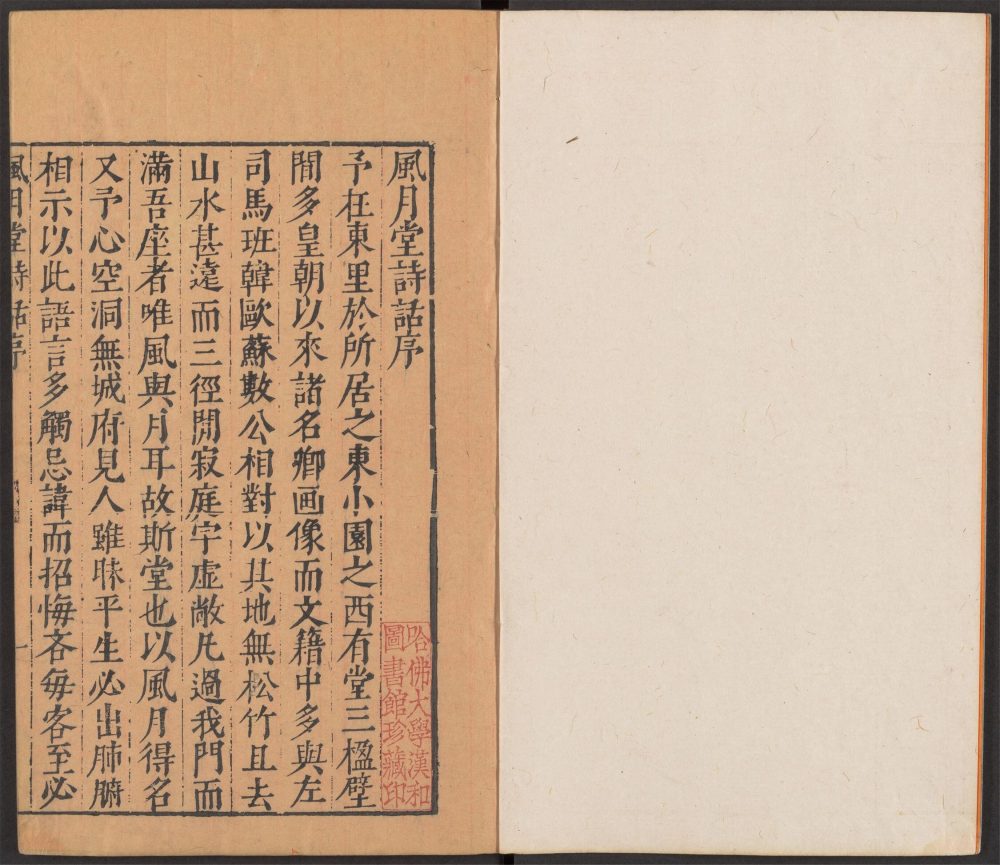 風月堂詩話序
予在東里於所居之東小園之西有堂三楹壁
間多皇朝以來諸名卿画像而文籍中多與左
司馬班韓歐蘇數公相對以其地無松竹且去
山水甚遠而三徑閒寂庭宇虚敞凡過我門而
滿吾座者唯風與月耳故斯堂也以風月得名
又予心空洞無城府見人雖昧平生必出肺腑
相示以此語言多觸忌諱而招悔吝每客至必
風月堂詩話序
一
哈佛大學漢和
圖書館珍藏印